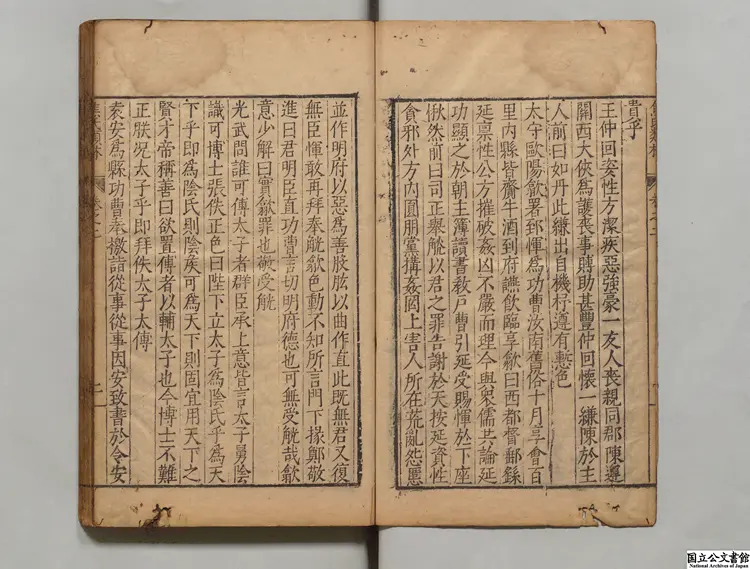 貴乎
王仲回姿性方潔疾惡強豪一友人喪親同郡陳遵
關西大俠爲護喪事賻助甚豐仲回懷一縑陳於主
人前曰如丹此縑出自機杼遵有慙色
太守歐陽歙署郅惲爲功曹汝南舊俗十月享會百
里内縣皆齎牛酒到府讌飲臨享歙曰西都督郵繇
延禀性公方摧破姦凶不嚴而理今與衆儒共論延
功顯之於朝主簿讀書教戶曹引延受賜惲於下座
愀然前曰司正舉觥以君之罪告謝於天按延資性
貪邪外方内圓朋黨搆姦罔上害人所在荒亂怨慝
並作明府以惡爲善股肱以曲作直此既無君又復
無臣惲敢再拜奉觥歙色動不知所言門下掾鄭敬
進曰君明臣直功曹言切明府德也可無受觥哉歙
意少解曰實歙罪也敬受觥
光武問誰可傅太子者群臣承上意皆言太子舅陰
識可博士張佚正色曰陛下立太子爲陰氏乎爲天
下乎即爲陰氏則陰矦可爲天下則固宜用天下之
賢才帝稱善曰欲置傅者以輔太子也今博士不難
正朕况太子乎即拜佚太子太傅
袁安爲縣功曹奉檄詣從事從事因安致書於令安
卷之二
二
国立公文書館
National Archives of Japan